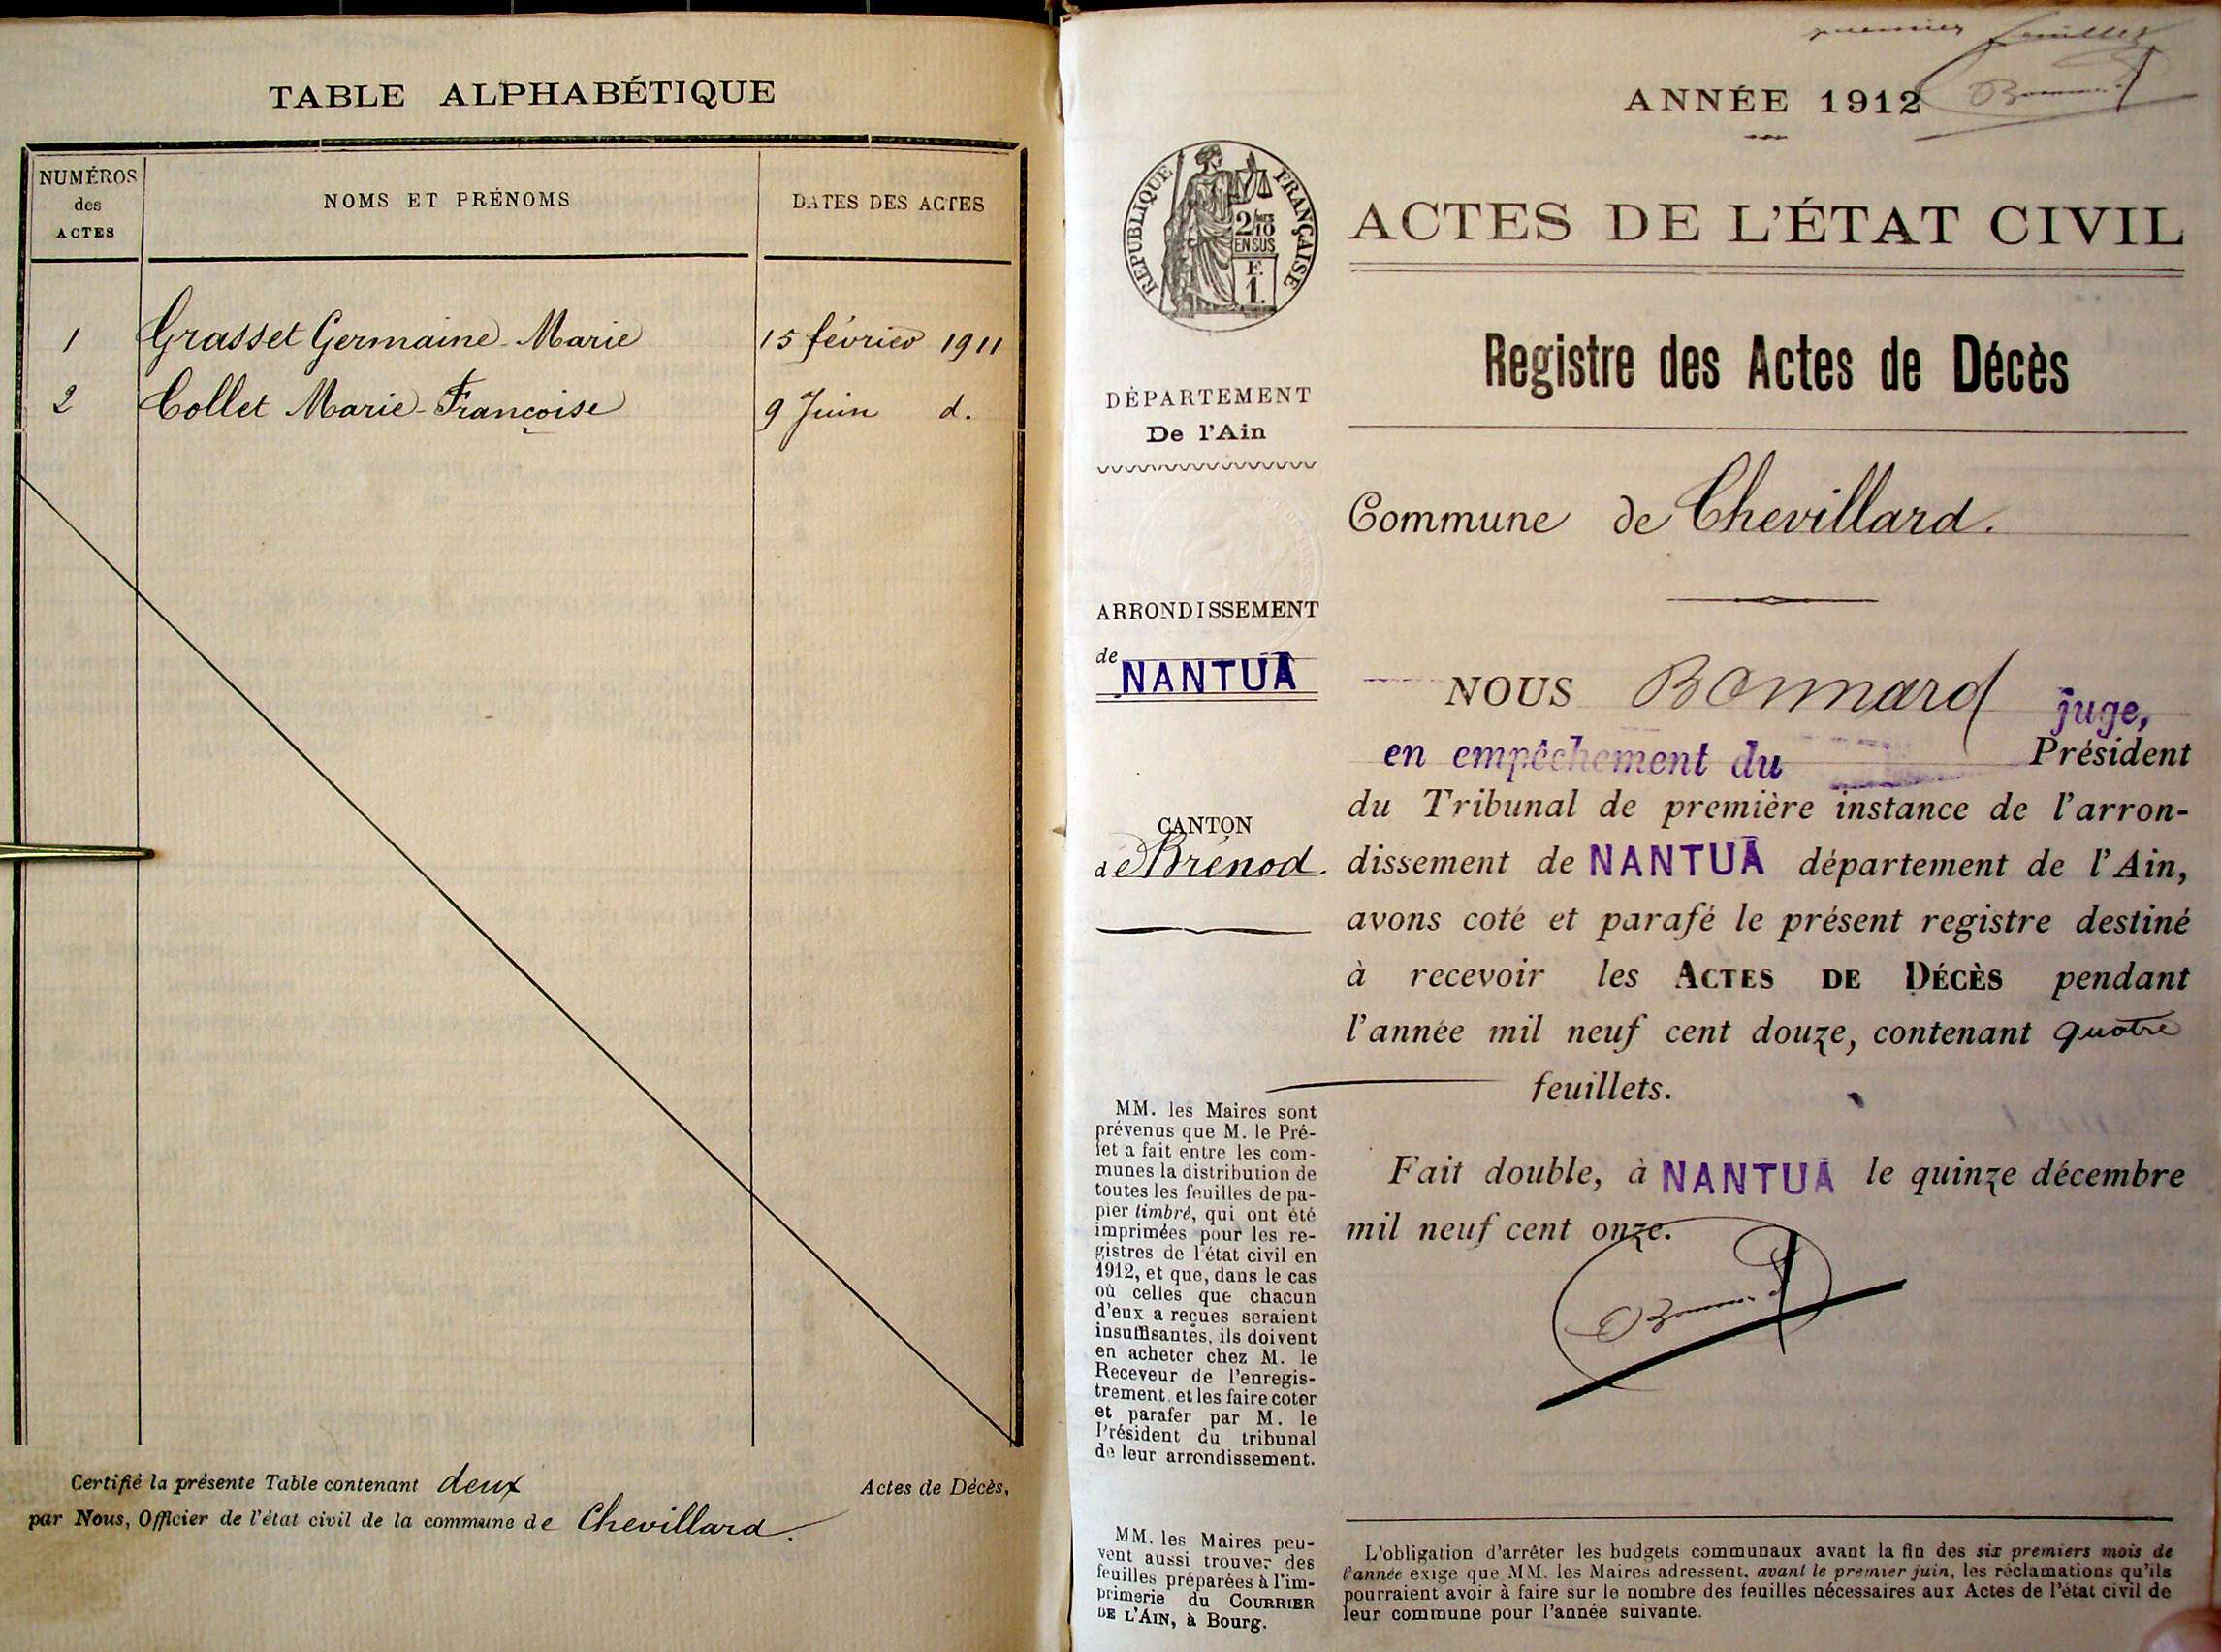 TABLE ALPHABÉTIQUE
NUMÉROS
des
ACTES
NOMS ET PRÉNOMS
DATES DES ACTES
1 Grasset Germaine-Marie 15 février 1911
2 Collet Marie-Françoise 9 Juin d.
Certifié la présente Table contenant deux Actes de Décès,
par Nous, Officier de l'état civil de la commune de Chevillard.
premier feuillet
Bonnard
ANNÉE 1912
RÉPUBLIQUE FRANÇAISE
2/10
EN SUS
F.
1.
ACTES DE L'ÉTAT CIVIL
Registre des Actes de Décès
DÉPARTEMENT
De l'Ain
Commune de Chevillard.
ARRONDISSEMENT
de NANTUA
CANTON
de Brénod.
NOUS Bonnard juge,
en empêchement du Président
du Tribunal de première instance de l'arron-
dissement de NANTUA département de l'Ain,
avons coté et parafé le présent registre destiné
à recevoir les ACTES DE DÉCÈS pendant
l'année mil neuf cent douze, contenant quatre
feuillets.
Fait double, à NANTUA le quinze décembre
mil neuf cent onze.
Bonnard
MM. les Maires sont
prévenus que M. le Pré-
fet a fait entre les com-
munes la distribution de
toutes les feuilles de pa-
pier timbré, qui ont été
imprimées pour les re-
gistres de l'état civil en
1912, et que, dans le cas
où celles que chacun
d'eux a reçues seraient
insuffisantes, ils doivent
en acheter chez M. le
Receveur de l'enregis-
trement, et les faire coter
et parafer par M. le
Président du tribunal
de leur arrondissement.
MM. les Maires peu-
vent aussi trouver des
feuilles préparées à l'im-
primerie du COURRIER
DE L'AIN, à Bourg.
L'obligation d'arrêter les budgets communaux avant la fin des six premiers mois de
l'année exige que MM. les Maires adressent, avant le premier juin, les réclamations qu'ils
pourraient avoir à faire sur le nombre des feuilles nécessaires aux Actes de l'état civil de
leur commune pour l'année suivante.